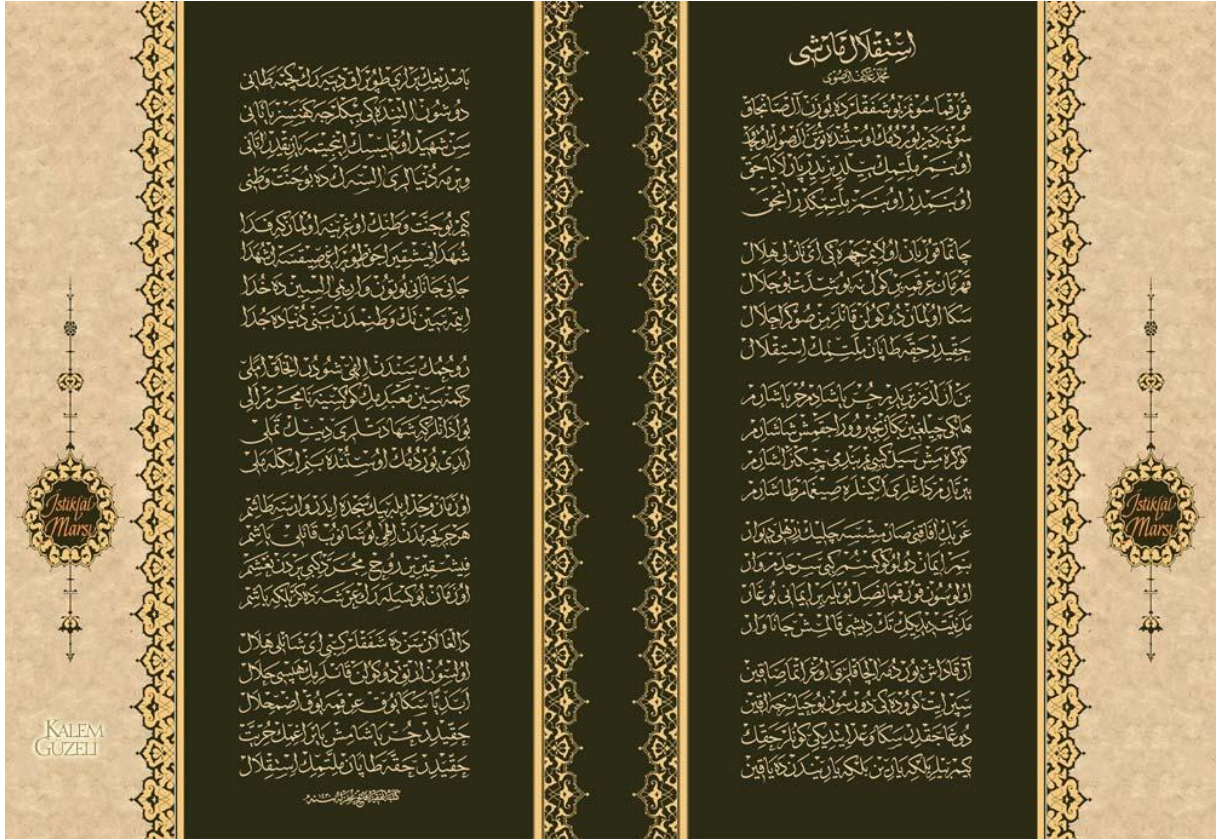 استقلال مارشی
محمد عاكف ارصوی
قورقما سونمز بو شفقلرده یوزن آل صانجاق
سونمه‌دن یوردمك اوستنده توتن اڭ صوڭ اوجاق
او بنم ملتمك ییلدیزیدر پارلایاجق
او بنمدر او بنم ملتمكدر آنجق
چاتما قوربان اولایم چهره‌كی ای نازلی هلال
قهرمان عرقمه بر گول نه بو شدت بو جلال
سكا اولماز دوكولن قانلریمز صوكرا حلال
حقیدر حقه طاپان ملتمك استقلال
بن ازلدن بریدر حر یاشادم حر یاشارم
هانكی چیلغین بكا زنجیر ووراجقمش شاشارم
كوكره‌مش سیل كبی‌یم بندمی چیكنر آشارم
ییرتارم داغلری انكینلره صیغمام طاشارم
غربك آفاقنی صارمشسه چلیك زرهلی دیوار
بنم ایمان دولو كوكسم كبی سرحدم وار
اولوسون قورقما ناصل بویله بر ایمانی بوغار
مدنیت دیدیكك تك دیشی قالمش جاناوار
آرقاداش یوردمه آلچاقلری اوغراتما صاقین
سپر ایت كووده‌كی دورسون بو حیاسزجه آقین
دوغاجقدر سكا وعد ایتدیكی كونلر حقك
كیم بیلیر بلكه یارین بلكه یاریندن ده یاقین
باصدیغك یرلری طوپراق دییه‌رك كچمه طانی
دوشون آلتنده‌كی بیكلرجه كفنسز یاتانی
سن شهید اوغلیسك اینجیتمه یازیقدر آتاكی
ویرمه دنیالری آلسه‌ك ده بو جنت وطنی
كیم بو جنت وطنك اوغرینه اولماز كه فدا
شهدا فیشقیراجق طوپراغی صیقسه‌ك شهدا
جانی جانانی بوتون واریمی آلسین ده خدا
ایتمه‌سین تك وطنمدن بنی دنیاده جدا
روحمك سندن الهی شودر آنجق املی
دكمه‌سین معبدمك كوكسینه نامحرم الی
بو اذانلر كه شهادتلری دینك تملی
ابدی یوردمك اوستنده بنم ایكله‌ملی
او زمان وجد ایله بیك سجده ایدر وارسه طاشم
هر جریحه‌مدن الهی بوشانوب قانلی یاشم
فیشقیریر روح مجرد كبی یردن نعشم
او زمان یوكسله‌رك عرشه دكر بلكه باشم
دالغالان سن ده شفقلر كبی ای شانلی هلال
اولسون آرتق دوكولن قانلریمك هپسی حلال
ابدیا سكا یوق عرقمه یوق اضمحلال
حقیدر حر یاشامش بایراغمك حریت
حقیدر حقه طاپان ملتمك استقلال
İstiklâl
Marşı
İstiklâl
Marşı
KALEM
GÜZELİ